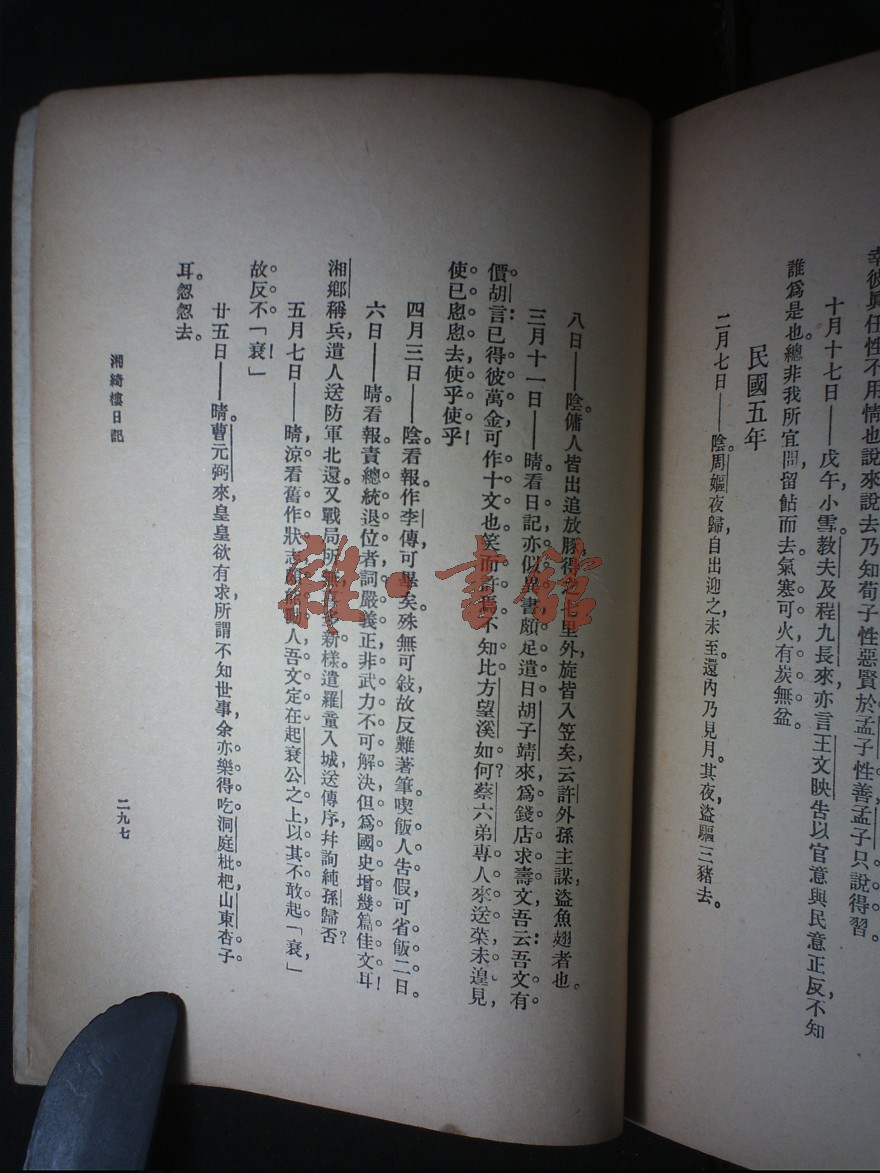 幸彼興任性不用情也說來說去乃知荀子性惡賢於孟子性善孟子只說得習
十月十七日——戊午，小雪教夫及程九長來，亦言王文映告以官意與民意正反不知
誰爲是也。總非我所宜問，留鮎而去。氣塞可火，有炭無盆。
民國五年
二月七日——陰。周嫗夜歸，自出迎之，未至，還內乃見月。其夜，盜驅三豬去。
八日——陰。傭人皆出追放豚，得之七里外，旋皆入笠矣，云許外孫主謀盜魚翅者也。
三月十一日——晴。看日記，亦似異書，頗足遣日。胡子靖來，爲錢店求壽文，吾云：吾文有
價。胡言：已得彼萬金，可作十文也。笑而許焉。不知比方望溪如何？蔡六弟專人來送菜，未遑見，
使已悤悤去，使乎使乎！
四月三日——陰。看報，作李傳可畢矣。殊無可敍，故反難著筆。喫飯人告假，可省飯二日。
六日——晴。看報，責總統退位者，詞嚴義正，非武力不可解決，但爲國史增幾篇佳文耳！
湘鄉稱兵，遣人送防軍北還。又戰局所無，新樣。遣羅童入城送傳序，幷詢純孫歸否？
五月七日——晴，涼。看舊作狀志，人，吾文定在起衰公之上，以其不敢起「衰」，
故反不「衰」！
廿五日——晴。曹元弼來，皇皇欲有求，所謂不知世事，余亦樂得吃洞庭枇杷，山東杏子
耳。怱怱去。
湘綺樓日記
二九七
雜·書館